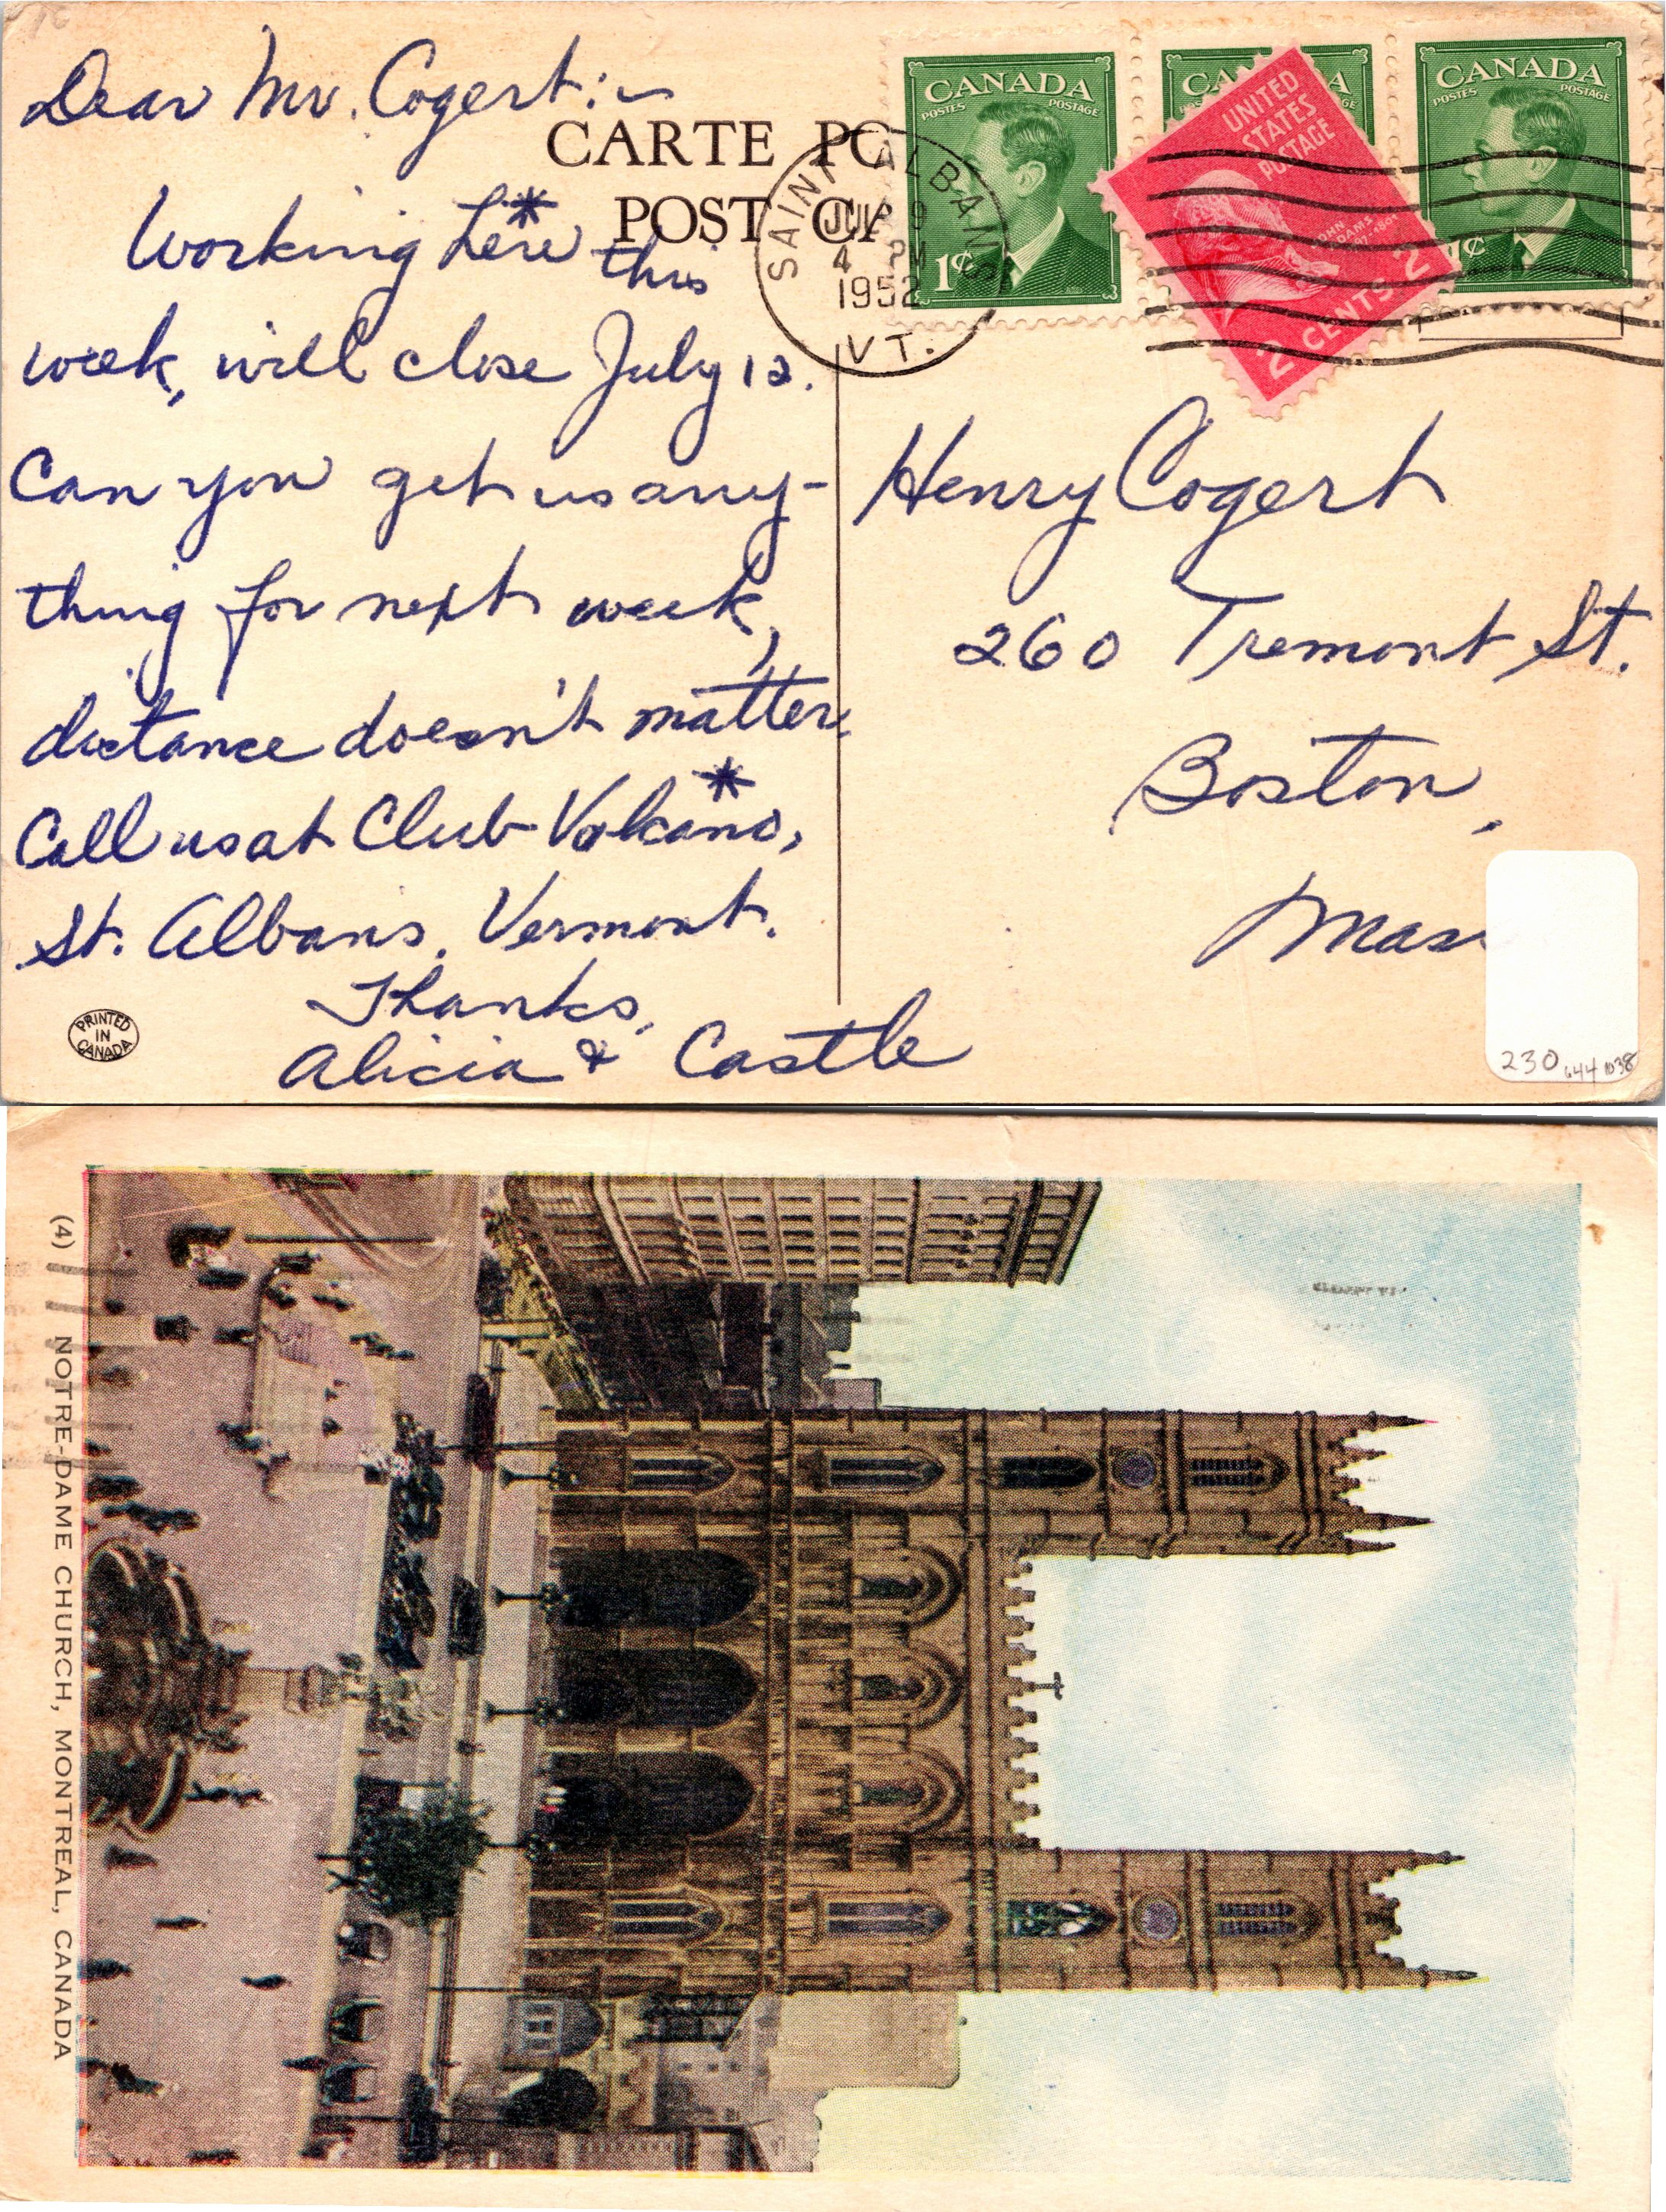 Dear Mr. Cogert:~
Working here* this
week, will close July 12.
Can you get us any-
thing for next week,
distance doesn't matter.
Call us at Club Volkano*,
St. Albans, Vermont.
Thanks,
Alicia & Castle
PRINTED
IN
CANADA
CARTE PO
POST CA
SAINT ALBANS
JUL 9
4 PM
1952
VT.
CANADA
POSTES POSTAGE
1¢
CA A
GE
UNITED
STATES
POSTAGE
JOHN
ADAMS
2 CENTS 2
CANADA
POSTES POSTAGE
1¢
Henry Cogert
260 Tremont St.
Boston,
Mass
230 644 1038
(4) NOTRE-DAME CHURCH, MONTREAL, CANADA